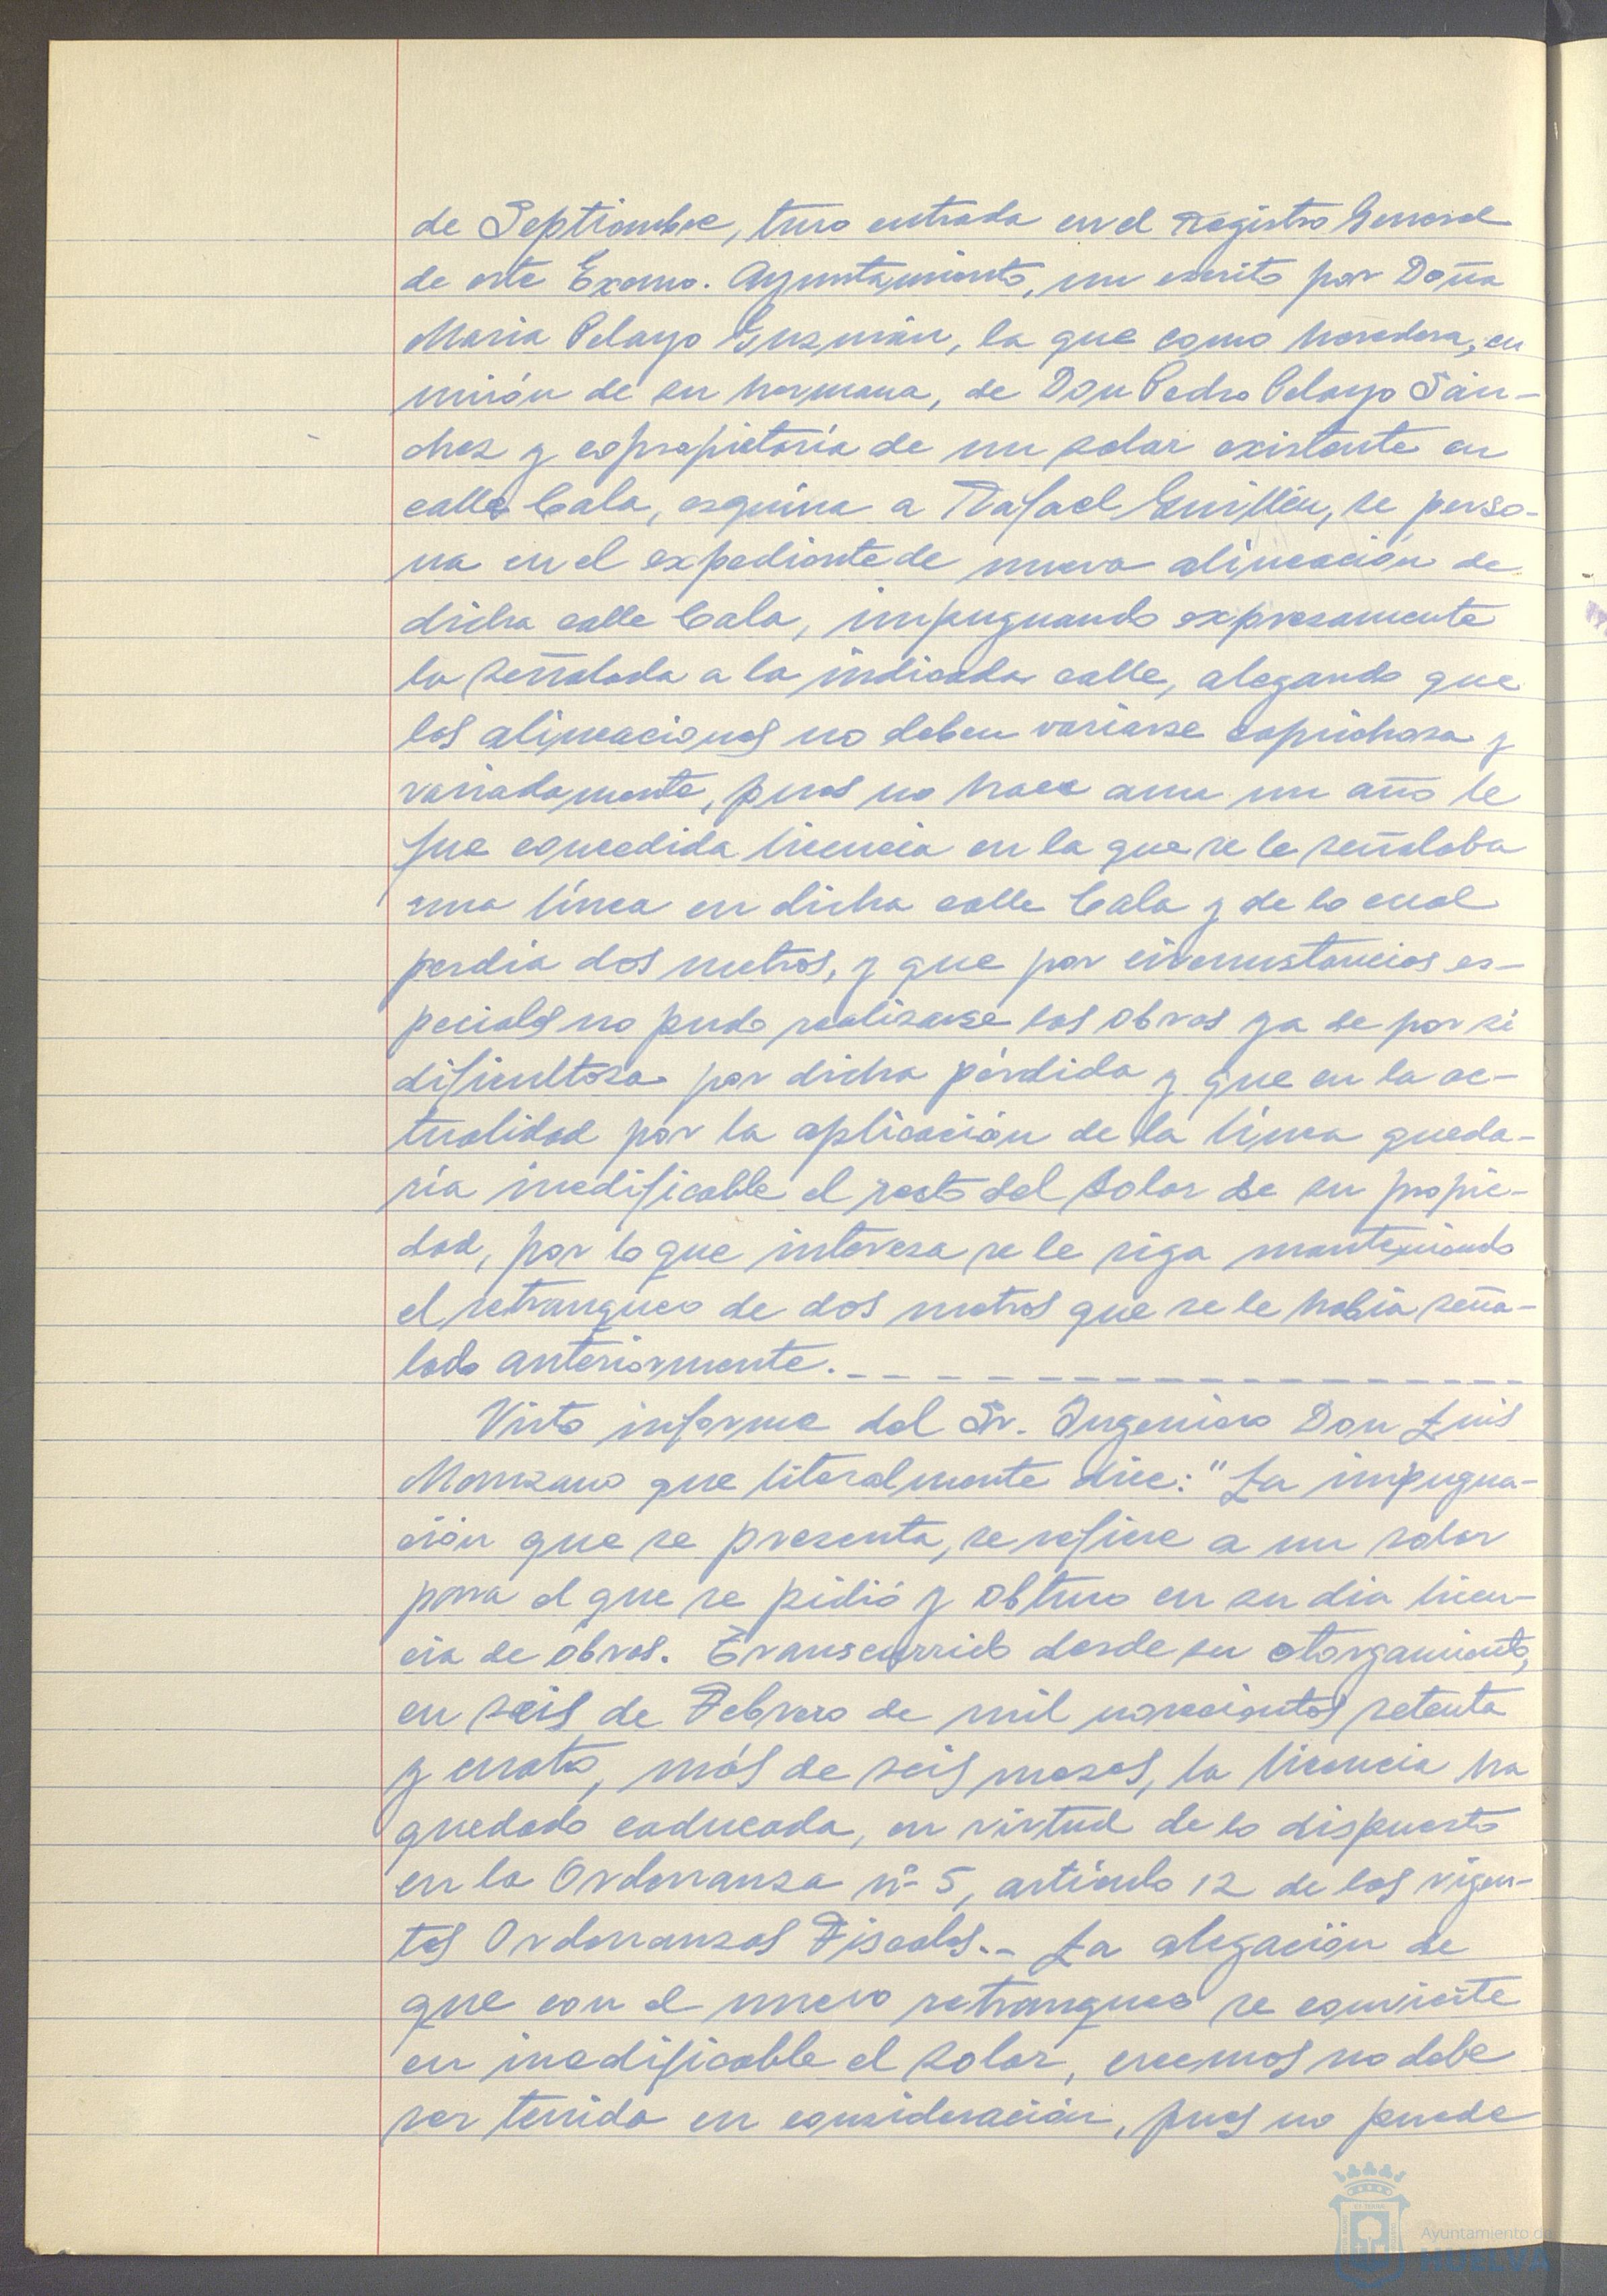 de Septiembre, tuvo entrada en el Registro General
de este Excmo. Ayuntamiento, un escrito por Doña
Maria Pelayo Guzmán, la que como heredera, en
unión de su hermana, de Don Pedro Pelayo Sán-
chez y copropietaria de un solar existente en
calle Cala, esquina a Rafael Guillén, se perso-
na en el expediente de nueva alineación de
dicha calle Cala, impugnando expresamente
la señalada a la indicada calle, alegando que
las alineaciones no deben variarse caprichosa y
variadamente, pues no hace aun un año le
fue concedida licencia en la que se le señalaba
una línea en dicha calle Cala y de lo cual
perdia dos metros, y que por circunstancias es-
peciales no pudo realizarse las obras ya de por si
dificultosa por dicha pérdida y que en la ac-
tualidad por la aplicación de la línea queda-
ría inedificable el resto del solar de su propie-
dad, por lo que interesa se le siga manteniendo
el retranqueo de dos metros que se le había seña-
lado anteriormente.
Visto informe del Sr. Ingeniero Don Luis
Manzano que literalmente dice: "La impugna-
ción que se presenta, se refiere a un solar
para el que se pidió y obtuvo en su dia licen-
cia de obras. Transcurrido desde su otorgamiento,
en seis de Febrero de mil novecientos setenta
y cuatro, más de seis meses, la licencia ha
quedado caducada, en virtud de lo dispuesto
en la Ordenanza nº 5, artículo 12 de las vigen-
tes Ordenanzas Fiscales.- La alegación de
que con el nuevo retranqueo se convierte
en inedificable el solar, creemos no debe
ser tenida en consideración, pues no puede
Ayuntamiento de
HUELVA